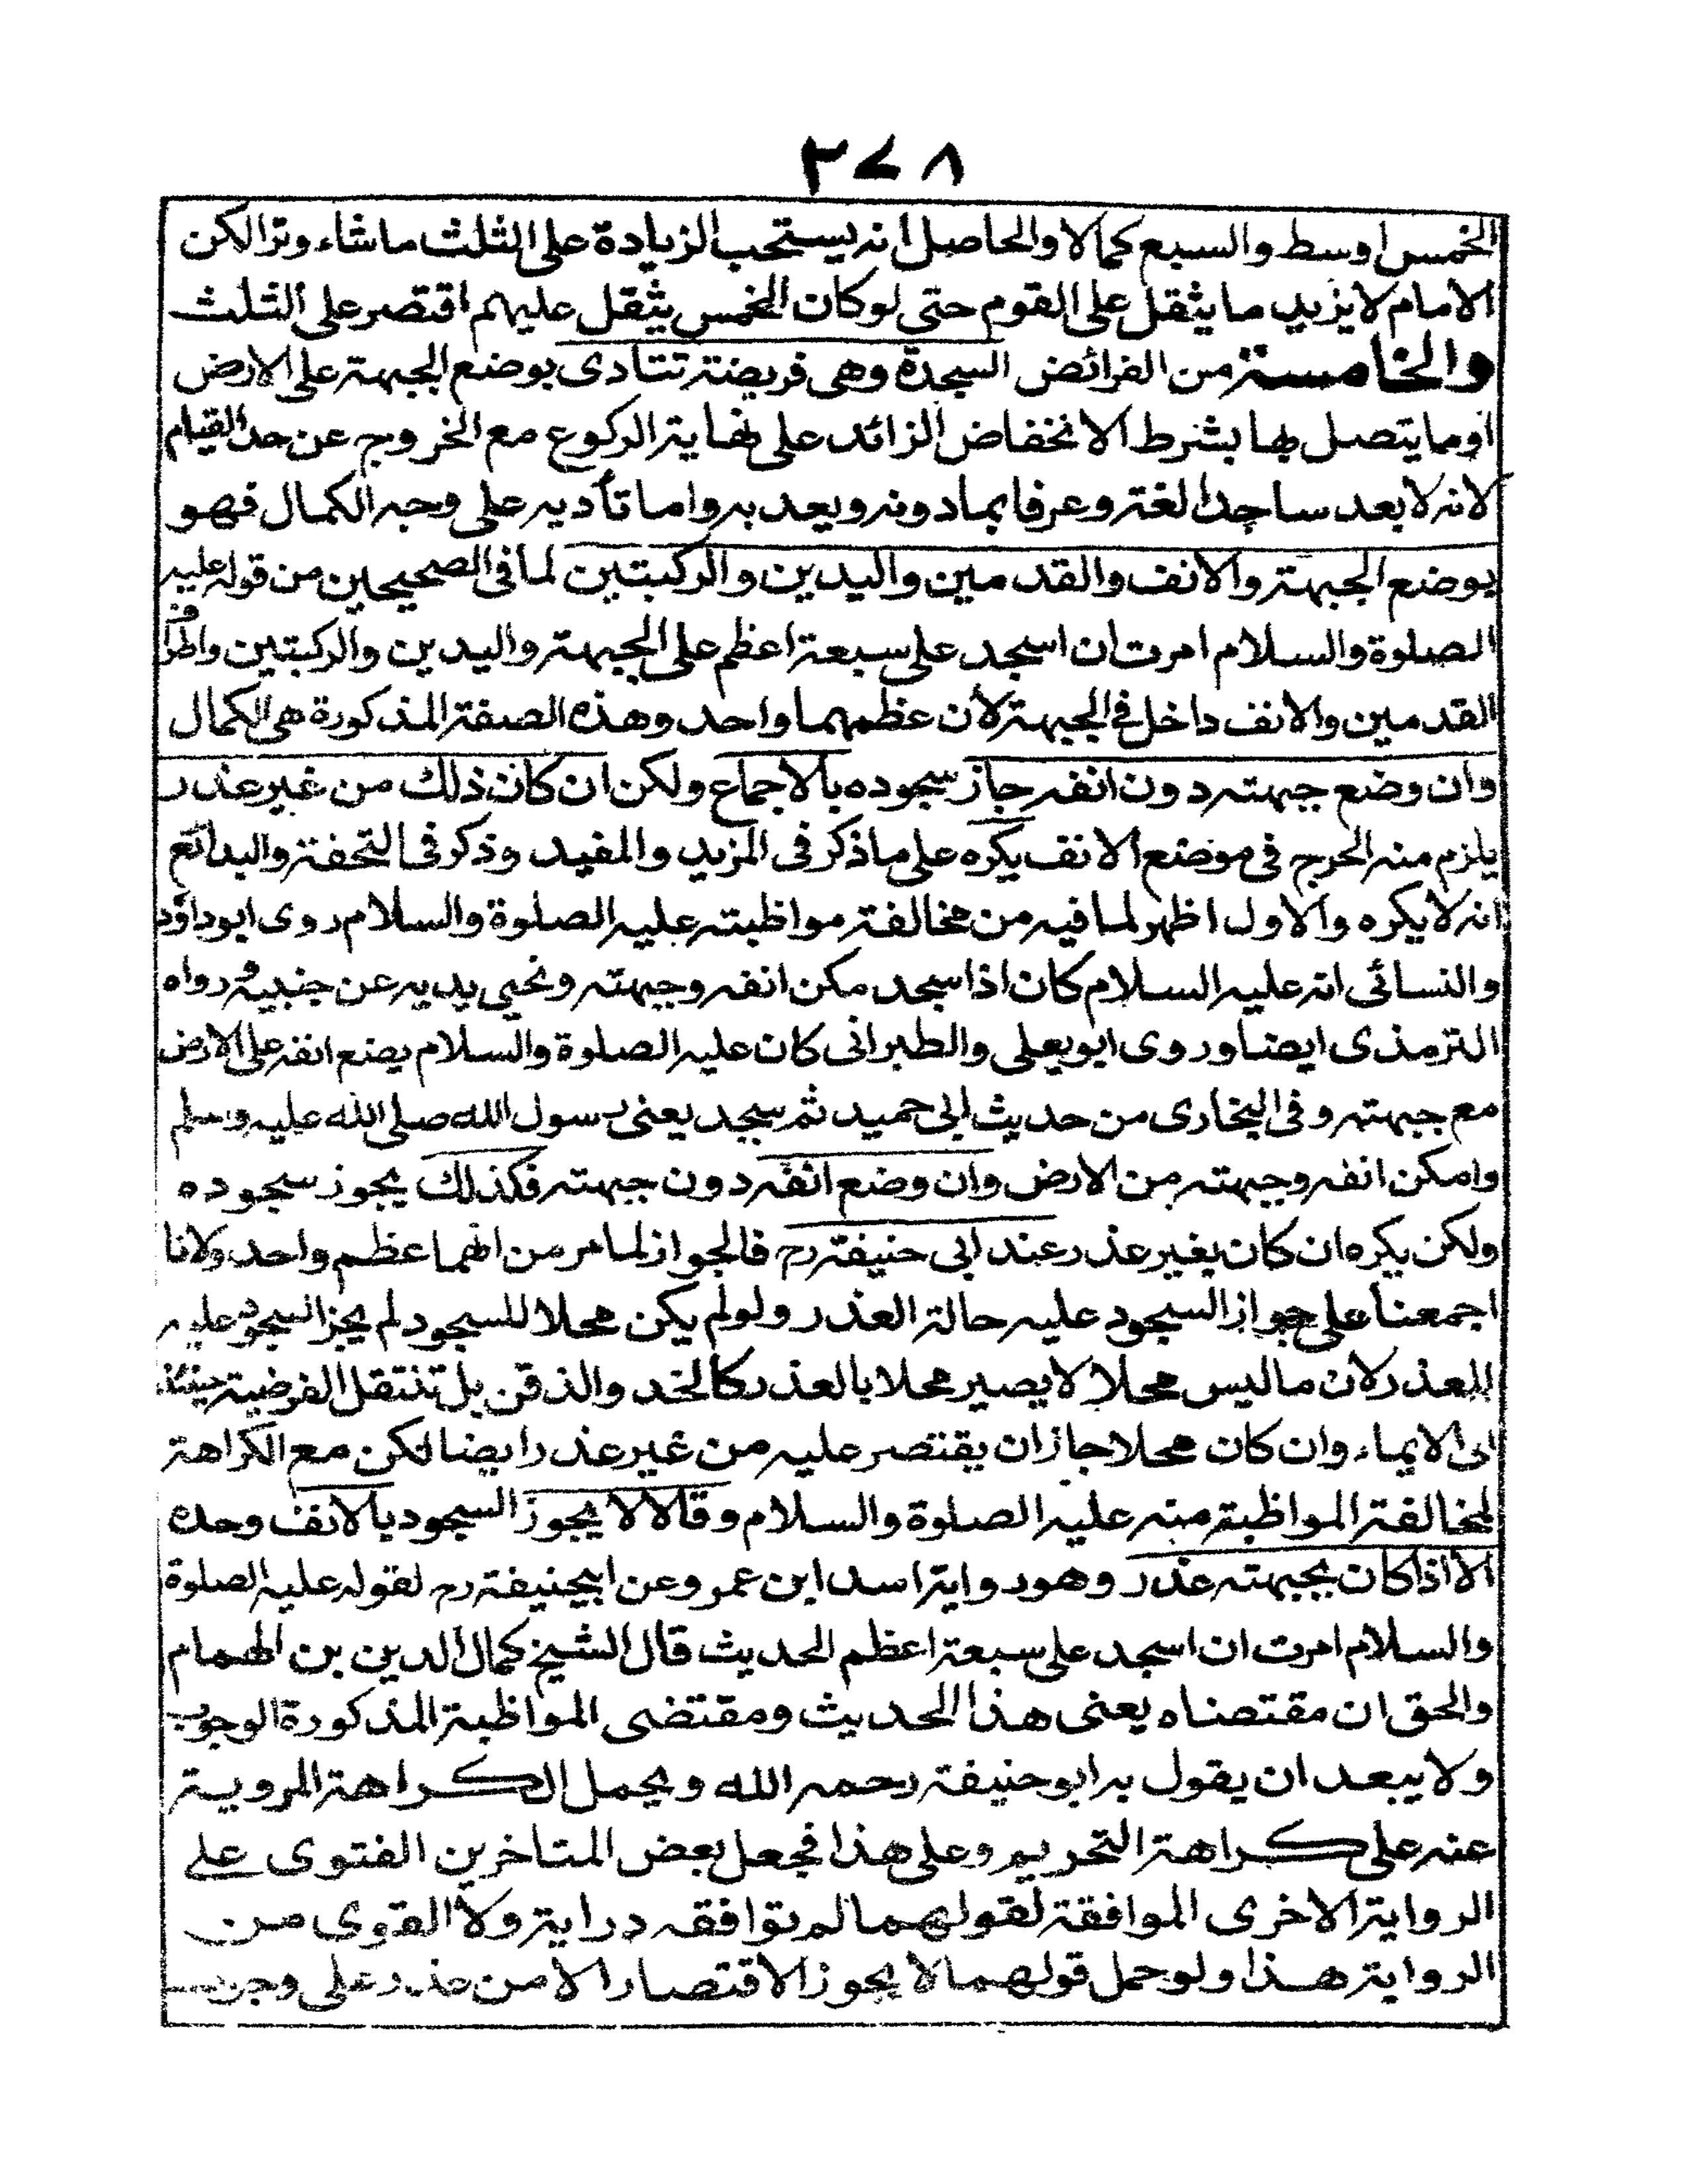 ٢٧٨
الخمس اوسط والسبع كمالا والحاصل انه يستحب الزيادة على الثلث ماشاء وترا لكن
الامام لا يزيد ما يثقل على القوم حتى لو كان الخمس يثقل عليهم اقتصر على الثلث
والخامسة من الفرائض السجدة وهى فريضة تتادى بوضع الجبهة على الارض
او ما يتصل بها بشرط الانخفاض الزائد على نهاية الركوع مع الخروج عن حد القيام
لانه لا يعد ساجدا لغة وعرفا بما دونه ويعد به واما تأديه على وجه الكمال فهو
بوضع الجبهة والانف والقدمين واليدين والركبتين لما فى الصحيحين من قوله عليه
الصلوة والسلام امرت ان اسجد على سبعة اعظم على الجبهة واليدين والركبتين واطراف
القدمين والانف داخل فى الجبهة لأن عظمهما واحد وهذه الصفة المذكورة هى الكمال
وان وضع جبهته دون انفه جاز سجوده بالاجماع ولكن ان كان ذلك من غير عذر
يلزم منه الحرج فى موضع الانف يكره على ما ذكر فى المزيد والمفيد وذكر فى التحفة والبدائع
انه لا يكره والاول اظهر لما فيه من مخالفة مواظبته عليه الصلوة والسلام روى ابوداؤد
والنسائى انه عليه السلام كان اذا سجد مكن انفه وجبهته ونحى يديه عن جنبيه رواه
الترمذى ايضا وروى ابويعلى والطبرانى كان عليه الصلوة والسلام يضع انفه على الارض
مع جبهته وفى البخارى من حديث ابى حميد ثم سجد يعنى رسول الله صلى الله عليه وسلم
وامكن انفه وجبهته من الارض وان وضع انفه دون جبهته فكذلك يجوز سجوده
ولكن يكره ان كان بغير عذر عند ابى حنيفة رح فالجواز لما مر من انهما عظم واحد ولانا
اجمعنا على جواز السجود عليه حالة العذر ولو لم يكن محلا للسجود لم يجز السجود عليه
للعذر لان ما ليس محلا لا يصير محلا بالعذر كالخد والذقن بل تنتقل الفرضية حينئذ
الى الايماء وان كان محلا جاز ان يقتصر عليه من غير عذر ايضا لكن مع الكراهة
لمخالفة المواظبة منه عليه الصلوة والسلام وقالا لا يجوز السجود بالانف وحده
الا اذا كان بجبهته عذر وهو رواية اسد ابن عمرو عن ابيحنيفة رح لقوله عليه الصلوة
والسلام امرت ان اسجد على سبعة اعظم الحديث قال الشيخ كمال الدين بن الهمام
والحق ان مقتضاه يعنى هذا الحديث ومقتضى المواظبة المذكورة الوجوب
ولا يبعد ان يقول به ابو حنيفة رحمه الله ويحمل الكراهة المروية
عنه على كراهة التحريم وعلى هذا فجعل بعض المتاخرين الفتوى على
الرواية الاخرى الموافقة لقولهما لم توافقه دراية ولا القوى من
الرواية هذا ولو حمل قولهما لا يجوز الاقتصار الا من عذر على وجوب